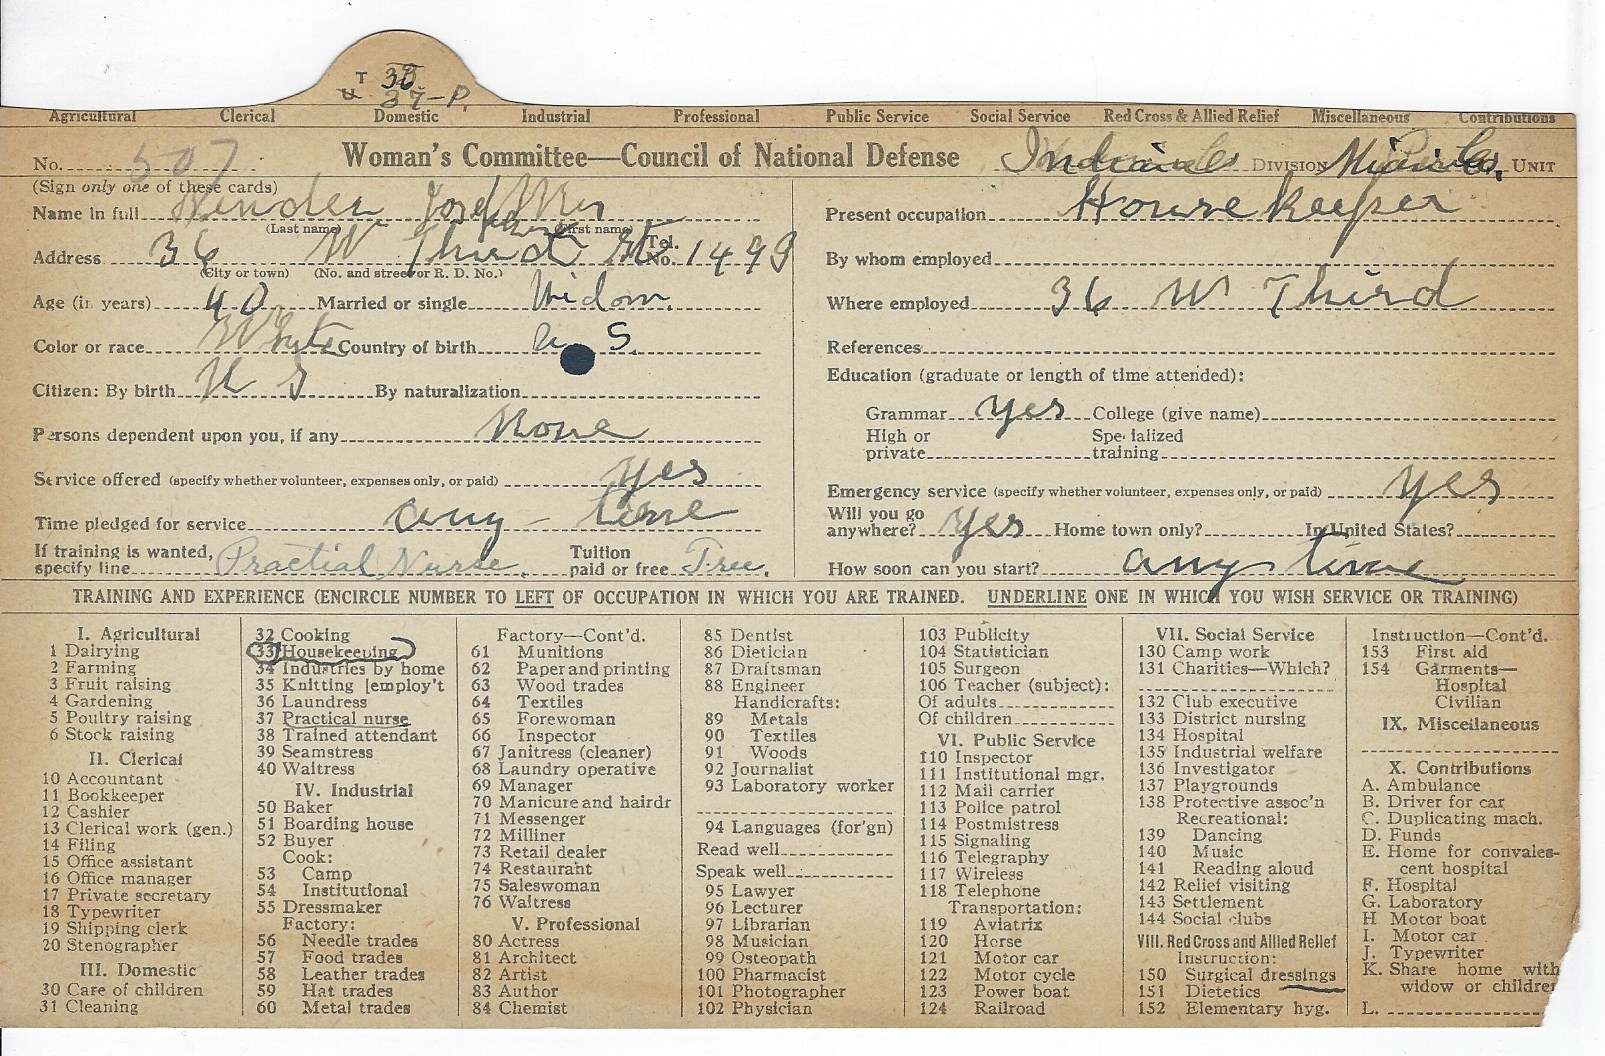 T 38
37-P.
Agricultural Clerical Domestic Industrial Professional Public Service Social Service Red Cross & Allied Relief Miscellaneous Contributions
No. 507 Woman's Committee—Council of National Defense Indiana DIVISION Miami Co. UNIT
(Sign only one of these cards)
Name in full Josephine Mrs
(Last name) (First name)
Address 36 W Third St Tel. No. 1493
(City or town) (No. and street or R. D. No.)
Age (in years) 40 Married or single Widow.
Color or race White Country of birth U. S.
Citizen: By birth U S By naturalization
Persons dependent upon you, if any None
Service offered (specify whether volunteer, expenses only, or paid) yes
Time pledged for service any - time
If training is wanted, specify line Practial Nurse. Tuition paid or free Free.
Present occupation Housekeeper
By whom employed
Where employed 36 W Third
References
Education (graduate or length of time attended):
Grammar yes College (give name)
High or private Specialized training
Emergency service (specify whether volunteer, expenses only, or paid) yes
Will you go anywhere? yes Home town only? In United States?
How soon can you start? any time
TRAINING AND EXPERIENCE (ENCIRCLE NUMBER TO LEFT OF OCCUPATION IN WHICH YOU ARE TRAINED. UNDERLINE ONE IN WHICH YOU WISH SERVICE OR TRAINING)
I. Agricultural
1 Dairying
2 Farming
3 Fruit raising
4 Gardening
5 Poultry raising
6 Stock raising
II. Clerical
10 Accountant
11 Bookkeeper
12 Cashier
13 Clerical work (gen.)
14 Filing
15 Office assistant
16 Office manager
17 Private secretary
18 Typewriter
19 Shipping clerk
20 Stenographer
III. Domestic
30 Care of children
31 Cleaning
32 Cooking
33 Housekeeping
34 Industries by home
35 Knitting [employ't
36 Laundress
37 Practical nurse
38 Trained attendant
39 Seamstress
40 Waitress
IV. Industrial
50 Baker
51 Boarding house
52 Buyer
Cook:
53 Camp
54 Institutional
55 Dressmaker
Factory:
56 Needle trades
57 Food trades
58 Leather trades
59 Hat trades
60 Metal trades
Factory—Cont'd.
61 Munitions
62 Paper and printing
63 Wood trades
64 Textiles
65 Forewoman
66 Inspector
67 Janitress (cleaner)
68 Laundry operative
69 Manager
70 Manicure and hairdr
71 Messenger
72 Milliner
73 Retail dealer
74 Restaurant
75 Saleswoman
76 Waitress
V. Professional
80 Actress
81 Architect
82 Artist
83 Author
84 Chemist
85 Dentist
86 Dietician
87 Draftsman
88 Engineer
Handicrafts:
89 Metals
90 Textiles
91 Woods
92 Journalist
93 Laboratory worker
94 Languages (for'gn)
Read well
Speak well
95 Lawyer
96 Lecturer
97 Librarian
98 Musician
99 Osteopath
100 Pharmacist
101 Photographer
102 Physician
103 Publicity
104 Statistician
105 Surgeon
106 Teacher (subject):
Of adults
Of children
VI. Public Service
110 Inspector
111 Institutional mgr.
112 Mail carrier
113 Police patrol
114 Postmistress
115 Signaling
116 Telegraphy
117 Wireless
118 Telephone
Transportation:
119 Aviatrix
120 Horse
121 Motor car
122 Motor cycle
123 Power boat
124 Railroad
VII. Social Service
130 Camp work
131 Charities—Which?
132 Club executive
133 District nursing
134 Hospital
135 Industrial welfare
136 Investigator
137 Playgrounds
138 Protective assoc'n
Recreational:
139 Dancing
140 Music
141 Reading aloud
142 Relief visiting
143 Settlement
144 Social clubs
VIII. Red Cross and Allied Relief
Instruction:
150 Surgical dressings
151 Dietetics
152 Elementary hyg.
Instruction—Cont'd.
153 First Aid
154 Garments—
Hospital
Civilian
IX. Miscellaneous
X. Contributions
A. Ambulance
B. Driver for car
C. Duplicating mach.
D. Funds
E. Home for convales-
cent hospital
F. Hospital
G. Laboratory
H Motor boat
I. Motor car
J. Typewriter
K. Share home with
widow or children
L.